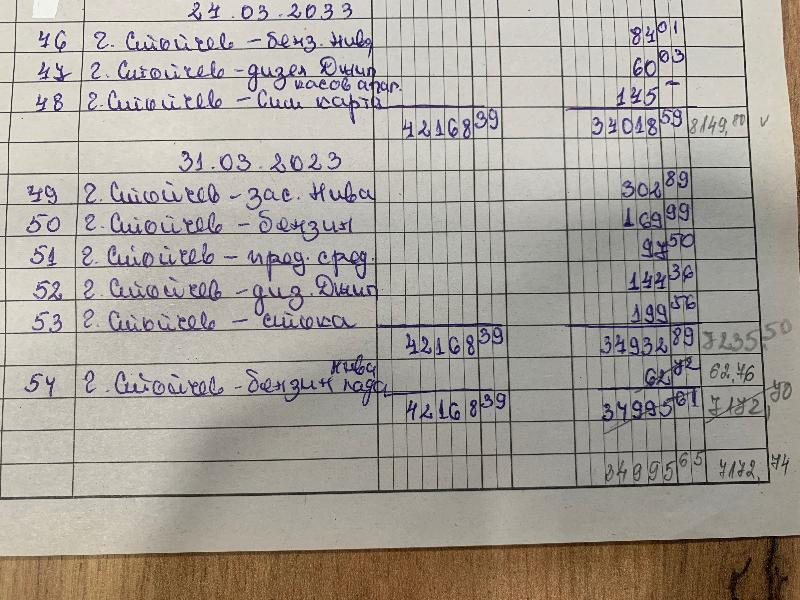 24.03.2033
46 г. Стойчев – бенз. Нива 84 01
47 г. Стойчев – дизел Джип 60 03
касов апар.
48 г. Стойчев – Сим карта 145 –
42168 39 34018 59 8149,80 v
31.03.2023
49 г. Стойчев – зас. Нива 302 89
50 г. Стойчев – бензин 169 99
51 г. Стойчев – прод. сред. 97 50
52 г. Стойчев – диз. Джип 144 36
53 г. Стойчев – стока 199 56
42168 39 34932 89 7235,50
Нива
54 г. Стойчев – бензин 62 72 62,76
42168 39 34995 61 7172,70
34995 65 7172,74